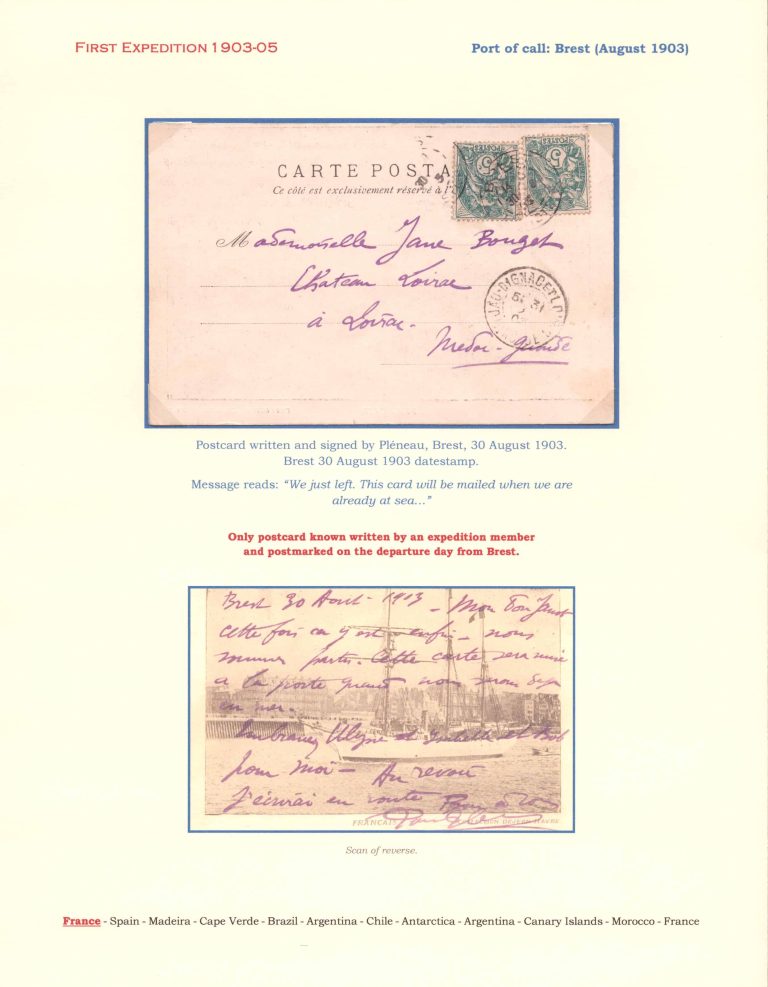 FIRST EXPEDITION 1903-05
Port of call: Brest (August 1903)
CARTE POSTA
Ce côté est exclusivement réservé à l'
POSTES
5
5
Mademoiselle Jane Bouget
Château Loirac
à Loirac.
Medoc - Gironde
Postcard written and signed by Pléneau, Brest, 30 August 1903.
Brest 30 August 1903 datestamp.
Message reads: “We just left. This card will be mailed when we are
already at sea…”
Only postcard known written by an expedition member
and postmarked on the departure day from Brest.
Brest 30 Aout 1903 – Mon
cette fois ca y est – enfin – nous
sommes partis. Cette carte sera mise
a la poste quand nous serons
en mer.
Embrassez et et Bob
pour moi – Au revoir
J'écrirai en route
FRANCAIS HAVRE
Scan of reverse.
France - Spain - Madeira - Cape Verde - Brazil - Argentina - Chile - Antarctica - Argentina - Canary Islands - Morocco - France